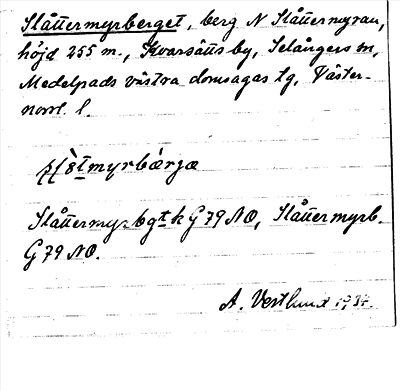 Slåttermyrberget, berg N Slåttermyran,
höjd 255 m., Kvarsätts by, Selångers sn,
Medelpads västra domsagas tg, Väster-
norrl. l.
Slåttermyrbgtk G 79 NO, Slåttermyrb.
G 79 NO.
A. Vestlund 1934.